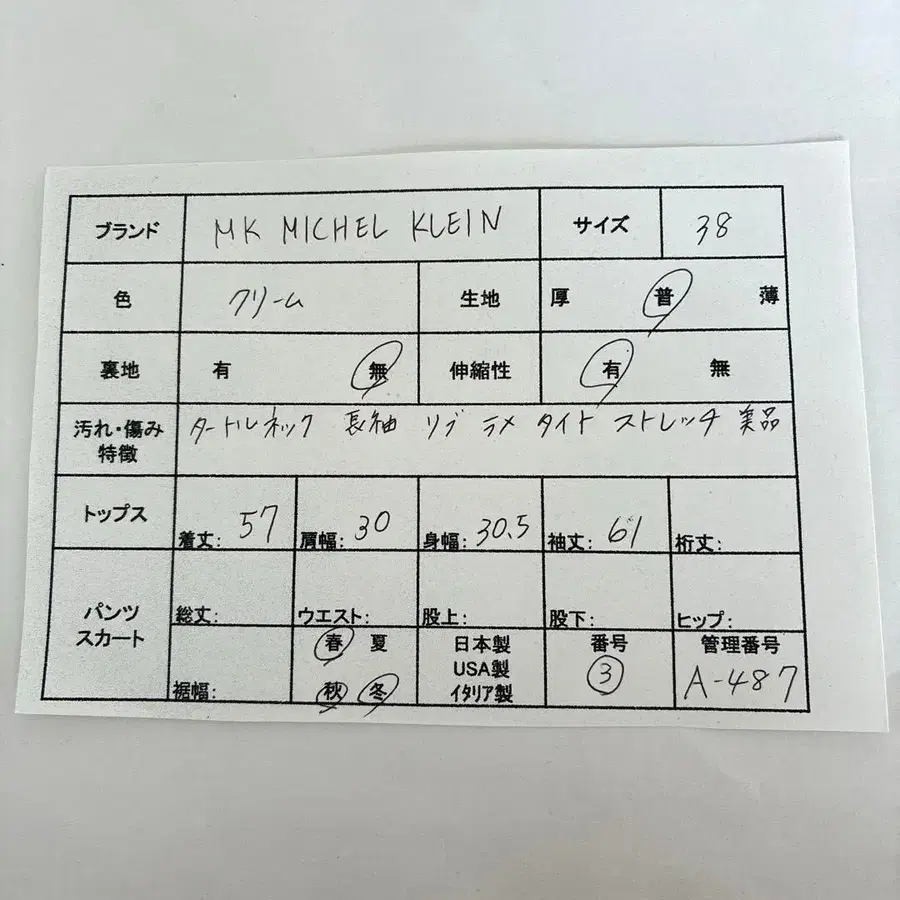 ブランド MK MICHEL KLEIN サイズ 38
色 クリーム 生地 厚 普 薄
裏地 有 無 伸縮性 有 無
汚れ・傷み タートルネック 長袖 リブ ラメ タイト ストレッチ 美品
特徴
トップス 着丈: 57 肩幅: 30 身幅: 30.5 袖丈: 61 裄丈:
パンツ
スカート
総丈: ウエスト: 股上: 股下: ヒップ:
裾幅:
春 夏
秋 冬
日本製
USA製
イタリア製
番号
3
管理番号
A-487